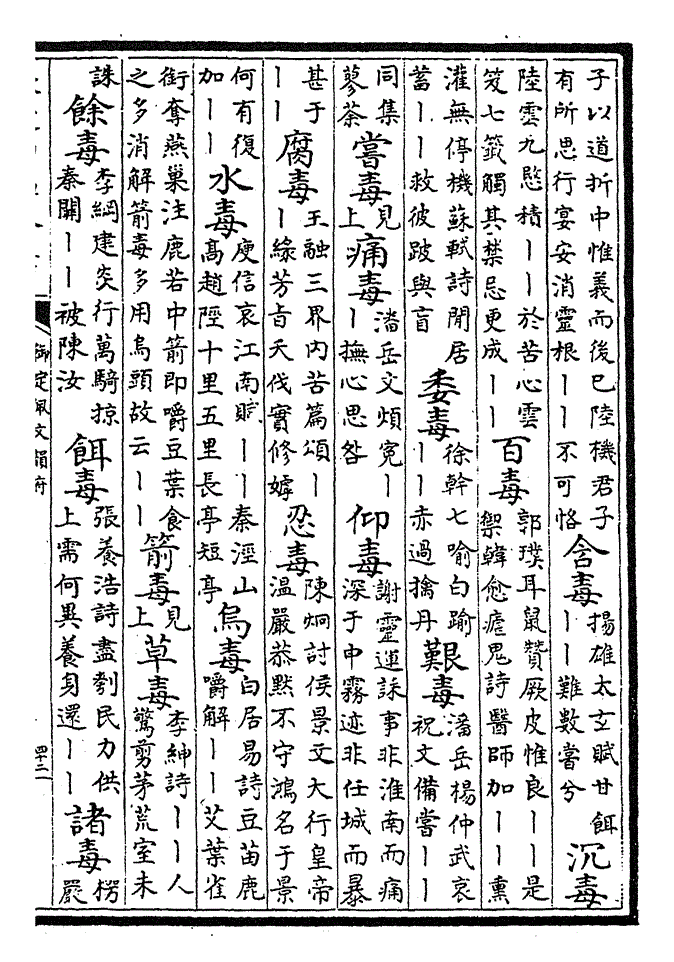 子以道折中惟義而後已陸機君子
有所思行宴安消靈根丨丨不可恪
含毒
揚雄太玄賦甘餌
丨丨難數嘗兮
沉毒
陸雲九愍積丨丨於苦心雲
笈七籖觸其禁忌更成丨丨
百毒
郭璞耳鼠贊厥皮惟良丨丨是
禦韓愈瘧鬼詩醫師加丨丨熏
灌無停機蘇軾詩閒居
蓄丨丨救彼跛與盲
委毒
徐幹七喻白踰
丨丨赤過擒丹
艱毒
潘岳楊仲武哀
祝文備嘗丨丨
同集
蓼荼
嘗毒
見
上
痛毒
潘岳文煩寃丨
丨撫心思咎
仰毒
謝靈運誄事非淮南而痛
深于中霧迹非任城而暴
甚于
丨丨
腐毒
王融三界內苦篇頌丨
丨緣芳旨夭伐實修嫭
忍毒
陳炯討侯景文大行皇帝
温嚴恭默不守鴻名于景
何有復
加丨丨
水毒
庾信哀江南賦丨丨秦涇山
高趙陘十里五里長亭短亭
烏毒
白居易詩豆苗鹿
嚼解丨丨艾葉雀
銜奪燕巢注鹿若中箭即嚼豆葉食
之多消解箭毒多用烏頭故云丨丨
箭毒
見
上
草毒
李紳詩丨丨人
驚剪茅荒室未
誅
餘毒
李綱建炎行萬騎掠
秦關丨丨被陳汝
餌毒
張養浩詩盡刳民力供
上需何異養身還丨丨
諸毒
楞
嚴
御定佩文韻府
四十二